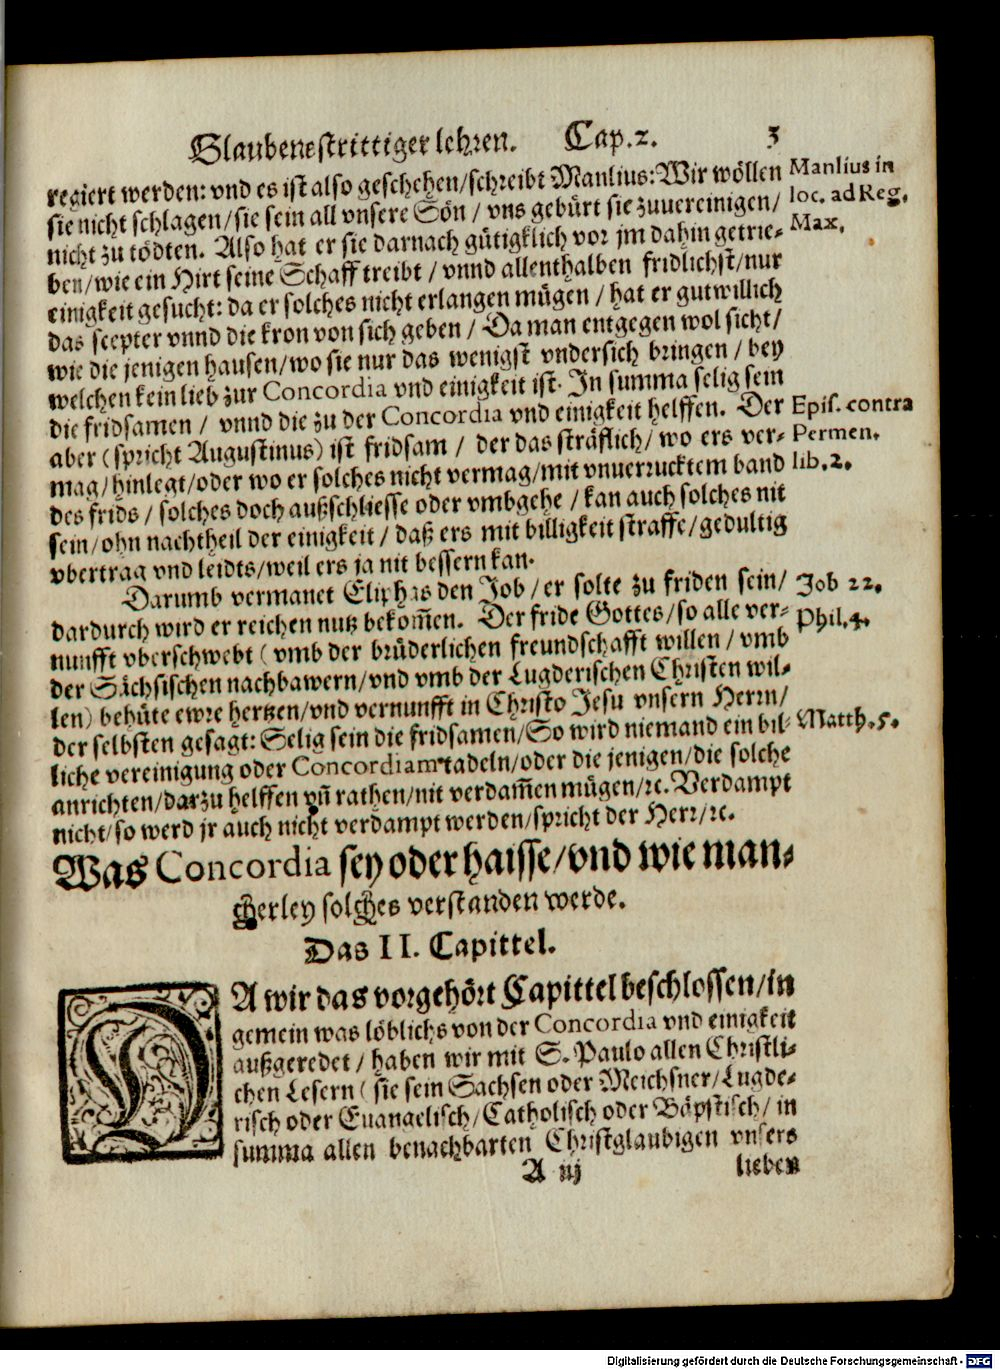 Glaubensstrittiger lehren. Cap.2. 3
regiert werden: vnd es ist also geschehen/schreibt Manlius: Wir wöllen
sie nicht schlagen/sie sein all vnsere Sön / vns gebürt sie zuuereinigen/
nicht zu tödten. Also hat er sie darnach gütigklich vor jm dahin getrie-
ben/wie ein Hirt seine Schaff treibt / vnnd allenthalben fridlichst/nur
einigkeit gesucht: da er solches nicht erlangen mügen / hat er gutwillich
das scepter vnnd die kron von sich geben / Da man entgegen wol sicht/
wie die jenigen hausen/wo sie nur das wenigst vndersich bringen / bey
welchen kein lieb zur Concordia vnd einigkeit ist. In summa selig sein
die fridsamen / vnnd die zu der Concordia vnd einigkeit helffen. Der
aber (spricht Augustinus) ist fridsam / der das sträflich/ wo ers ver-
mag/hinlegt/oder wo er solches nicht vermag/mit vnuerrucktem band
des frids / solches doch außschliesse oder vmbgehe / kan auch solches nit
sein/ohn nachtheil der einigkeit / daß ers mit billigkeit straffe/gedultig
vbertrag vnd leidts/weil ers ja nit bessern kan.
Manlius in
loc. ad Reg.
Max.
Epis. contra
Permen.
lib. 2.
Darumb vermanet Eliphas den Job / er solte zu friden sein/
dardurch wird er reichen nutz bekom̃en. Der fride Gottes/so alle ver-
nunfft vberschwebt (vmb der brüderlichen freundschafft willen / vmb
der Sächsischen nachbawern/vnd vmb der Lugderischen Christen wil-
len) behüte ewre hertzen/vnd vernunfft in Christo Jesu vnsern Herrn/
der selbsten gesagt: Selig sein die fridsamen/So wird niemand ein bil-
liche vereinigung oder Concordiam tadeln/oder die jenigen/die solche
anrichten/darzu helffen vñ rathen/nit verdam̃en mügen/ꝛc. Verdampt
nicht/so werd jr auch nicht verdampt werden/spricht der Herr/ꝛc.
Job 22.
Phil. 4.
Matth. 5.
Was Concordia sey oder haisse/vnd wie man-
cherley solches verstanden werde.
Das II. Capittel.
DA wir das vorgehört Capittel beschlossen/in
gemein was löblichs von der Concordia vnd einigkeit
außgeredet / haben wir mit S. Paulo allen Christli-
chen Lesern (sie sein Sachsen oder Meichsner/Lugde-
risch oder Euangelisch/Catholisch oder Bäpstisch/ in
summa allen benachbarten Christglaubigen vnsers
A iij lieben
Digitalisierung gefördert durch die Deutsche Forschungsgemeinschaft - DFG